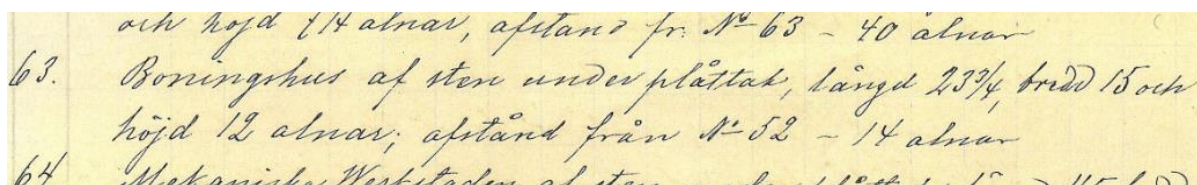 och höjd 14 alnar, afstånd fr. No 63 – 40 alnar
63. Boningshus af sten under plåttak, längd 23 3/4, bredd 15 och
höjd 12 alnar; afstånd från No 52 – 14 alnar
64 Mekaniska Werkstaden af sten